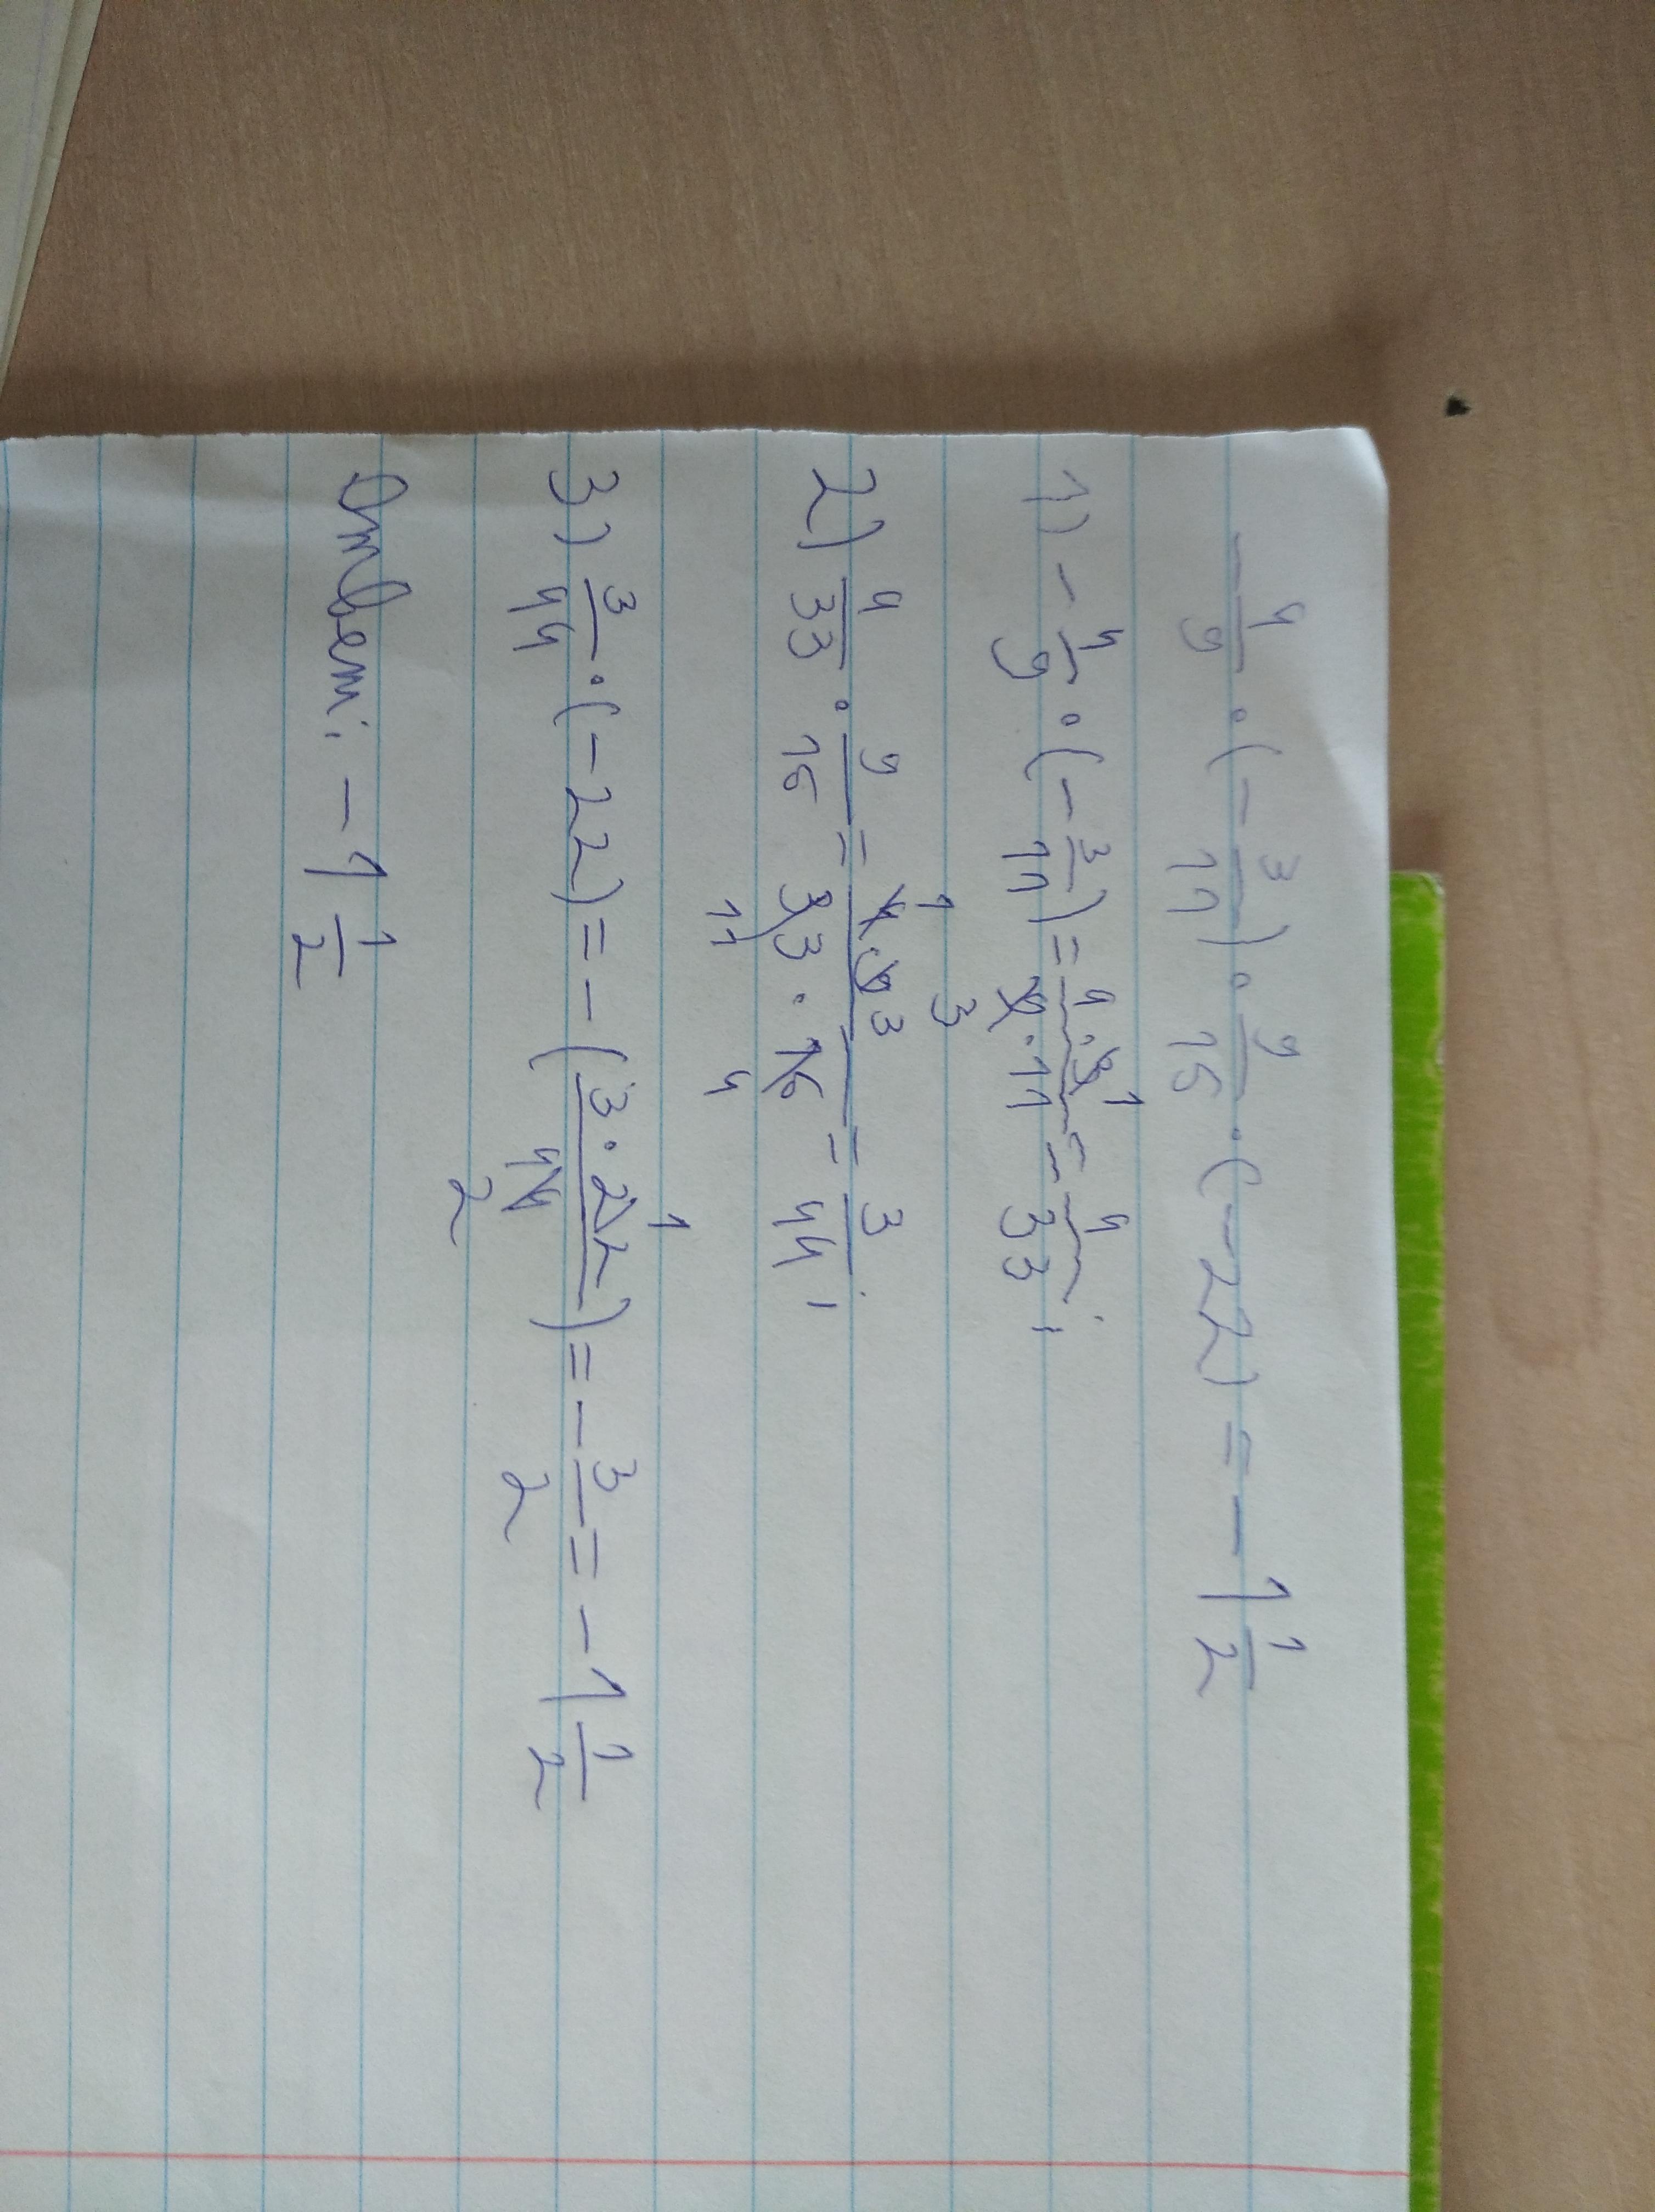 -4/9 · (-3/11) · 9/16 · (-22) = -1 1/2
1) -4/9 · (-3/11) = 4·3 1/9·11 = 4/33;
2) 4/33 · 9/16 = 1 3 4·9 3/33·16 11 4 = 3/44;
3) 3/44 · (-22) = -(3·22 1/44 2) = -3/2 = -1 1/2
Ответ: -1 1/2